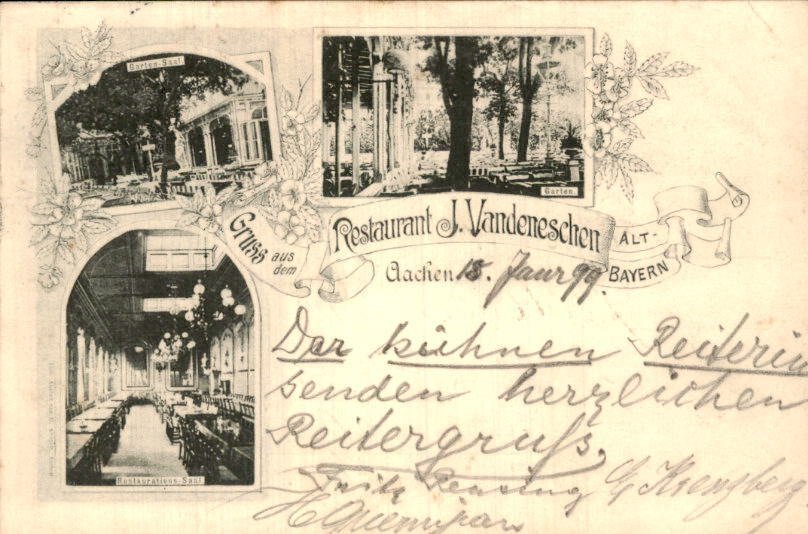 Garten-Saal
Garten
Gruss aus dem
Restaurant J. Vandeneschen
ALT-BAYERN
Aachen 15. Janr 99.
Restaurations-Saal
Der kühnen Reiterin
senden herzlichen
Reitergruß.
Fritz